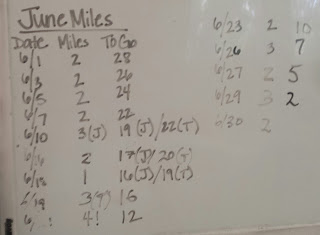 June Miles
Date Miles To Go
6/1 2 28
6/3 2 26
6/5 2 24
6/7 2 22
6/10 3(J) 19(J)/22(T)
2 17(J)/20(T)
1 16(J)/19(T)
6/19 3(T) 16
4! 12
6/23 2 10
6/26 3 7
6/27 2 5
6/29 3 2
6/30 2